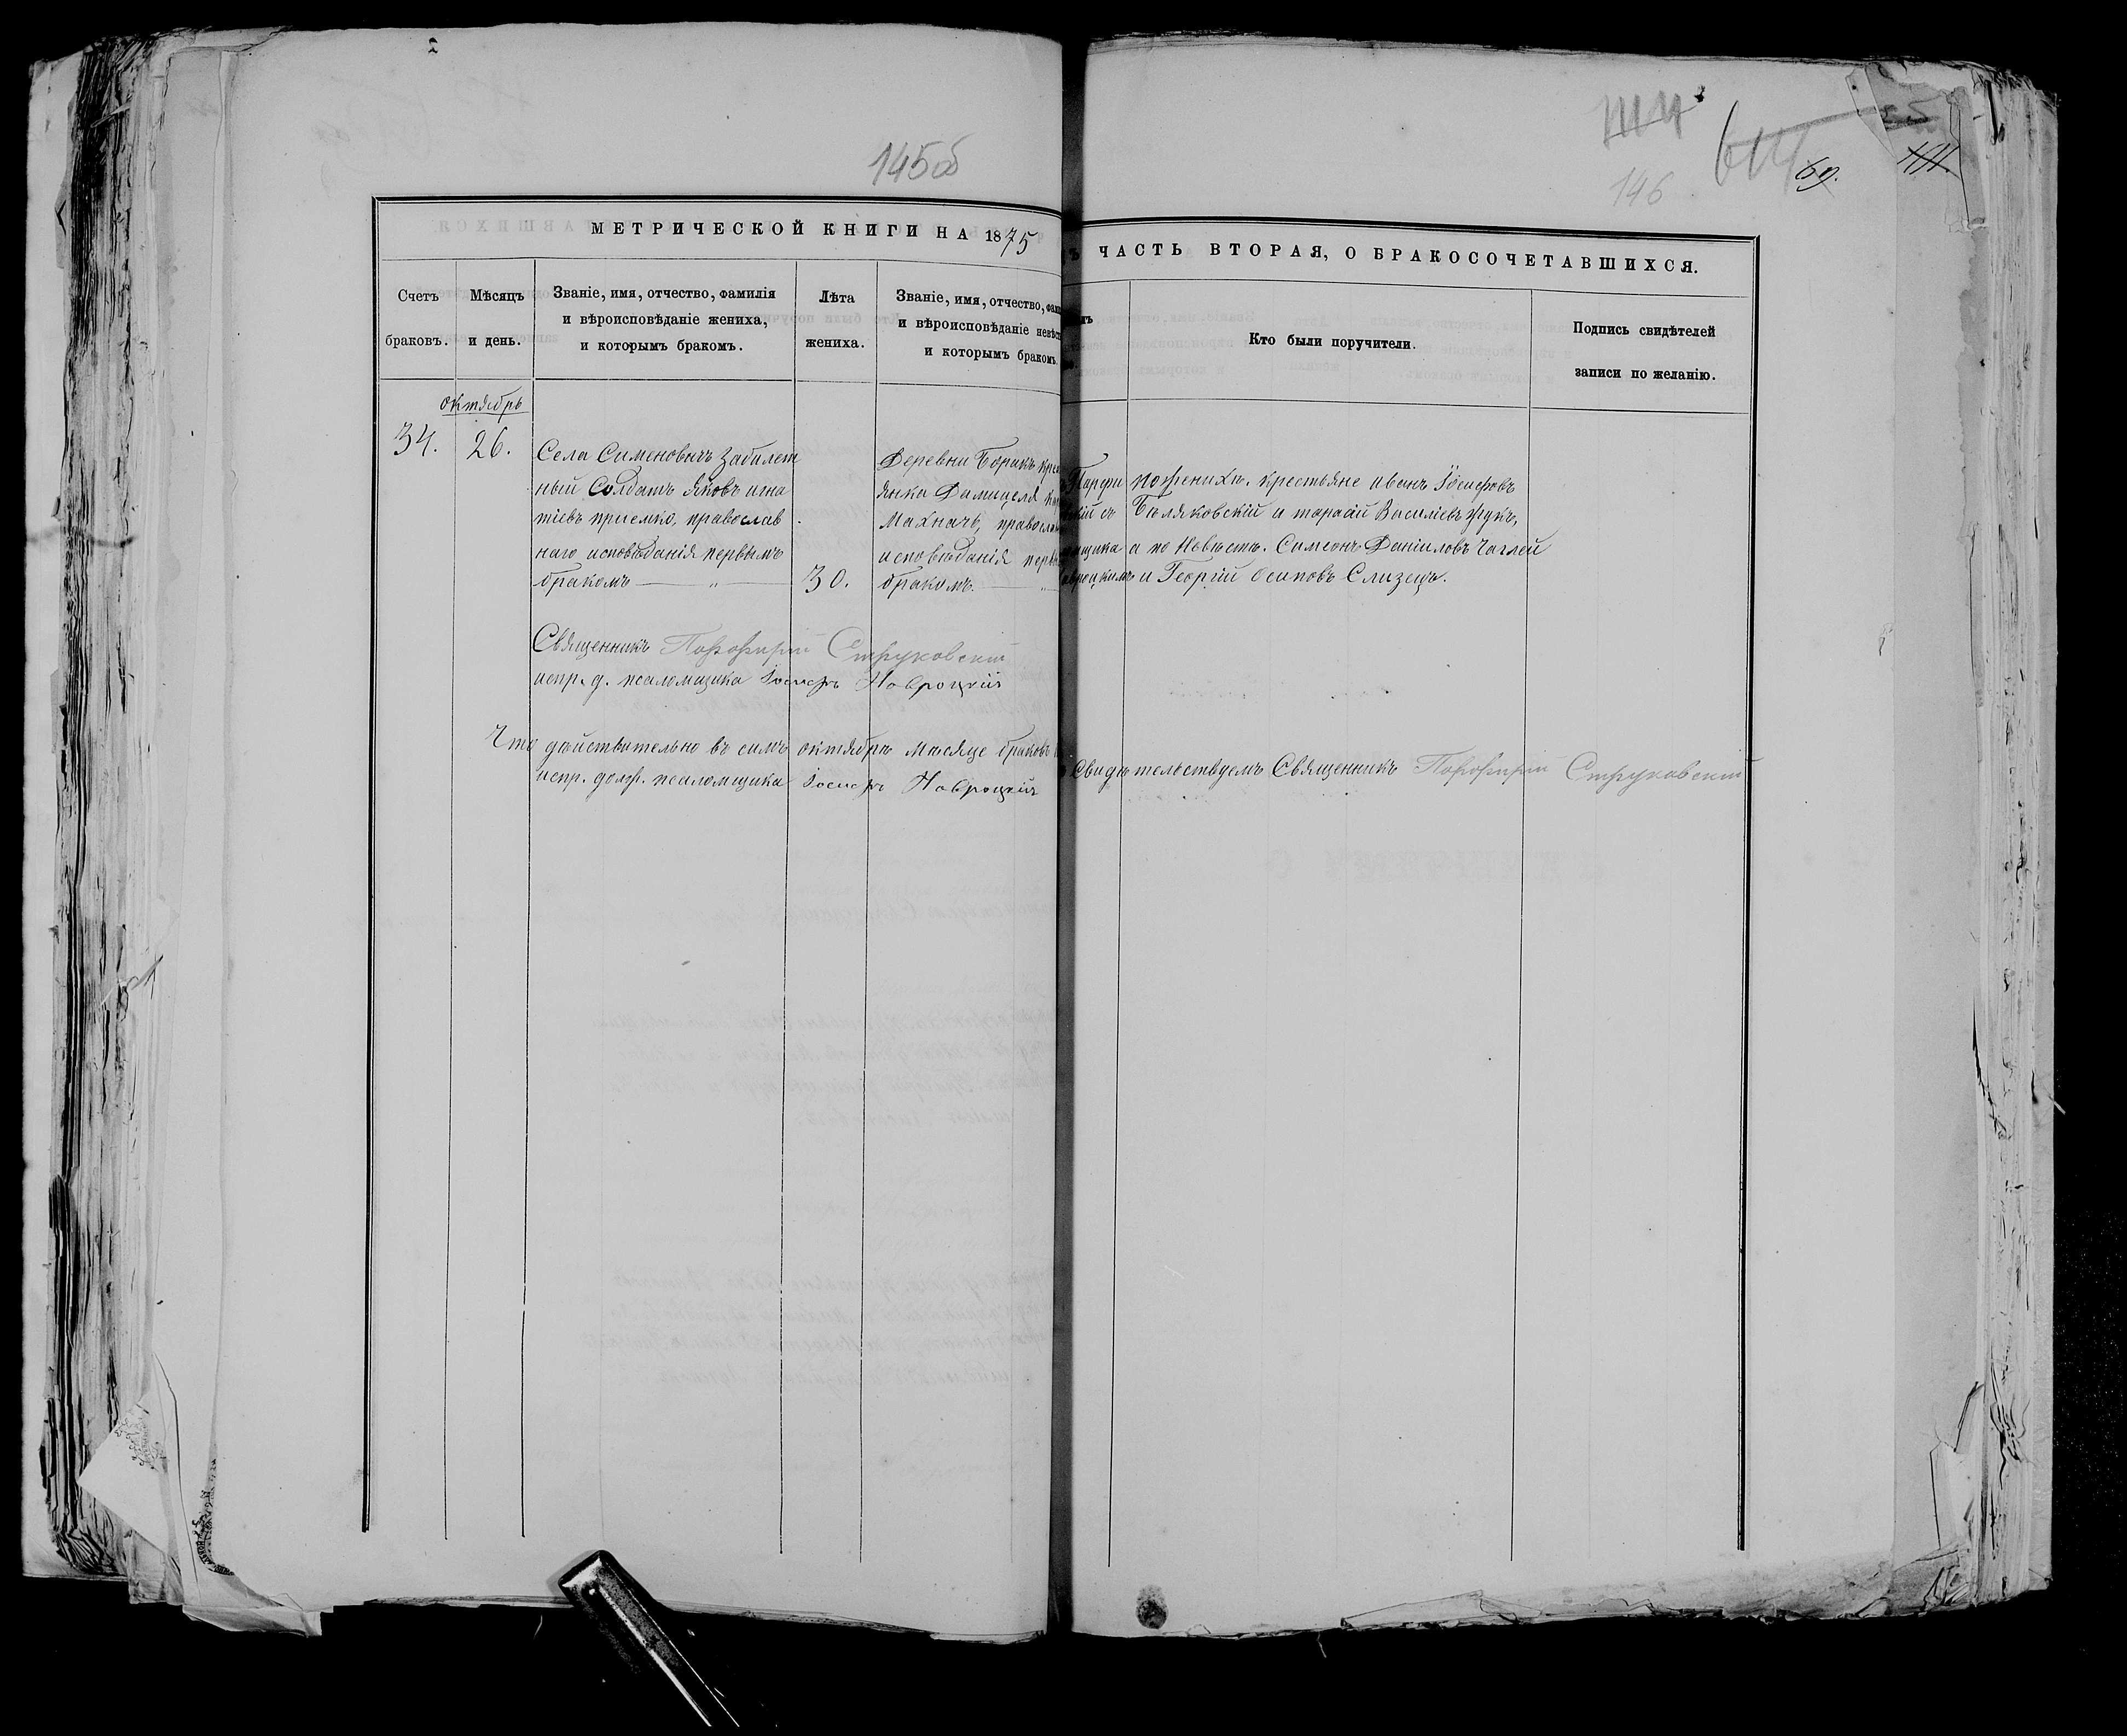 145об
146
69.
МЕТРИЧЕСКОЙ КНИГИ НА 1875
ЧАСТЬ ВТОРАЯ, О БРАКОСОЧЕТАВШИХСЯ.
Счетъ
браковъ.
Мѣсяцъ
и день.
Званіе, имя, отчество, фамилія
и вѣроисповѣданіе жениха,
и которымъ бракомъ.
Лѣта
жениха.
Званіе, имя, отчество,
и вѣроисповѣданіе
и которымъ бракомъ.
Кто были поручители.
Подпись свидѣтелей
записи по желанію.
октябрь
34.
26.
Села Сименовичъ забилет
ный Солдатъ Яковъ игна
тіевъ приемко, православ
наго исповѣданія первымъ
бракомъ
30.
Деревни Боракъ
янка Дамицеля
Махначъ,
исповѣданія
бракомъ.
пожениху. крестьяне иванъ Іосифовъ
Бѣляковскій и тарасій Василіевъ жукъ,
а по Невѣстѣ. Симеонъ Даніиловъ Чаглей
и Георгій Осиповъ Слизецъ.
Священникъ Порфирій Струковскій
испр. д. псаломщика Іосифъ Навроцкій
Что дѣйствительно въ семъ октябрѣ Мѣсяце браковъ
Свидѣтельствуемъ Священникъ Порфирій Струковскій
испр. долж. псаломщика Іосифъ Навроцкій